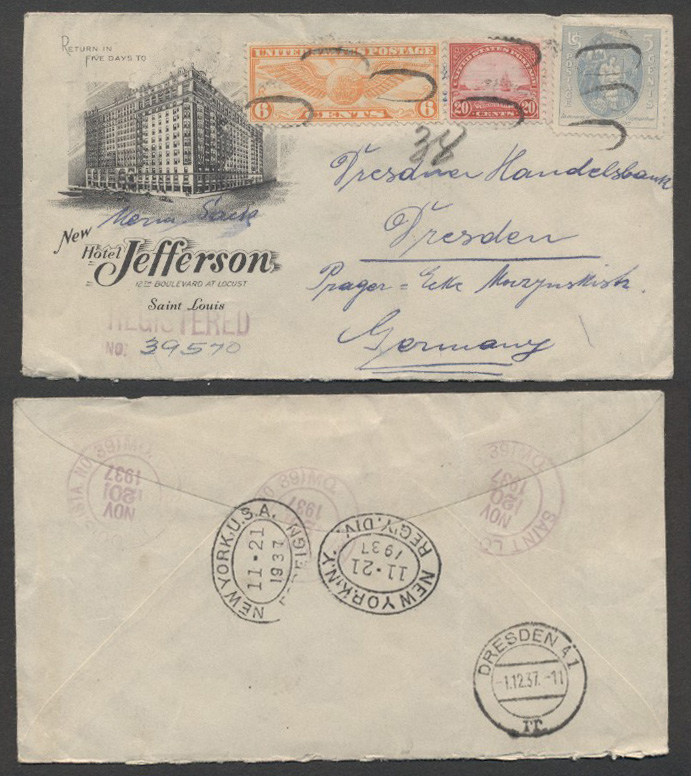 RETURN IN
FIVE DAYS TO
UNITED STATES POSTAGE
6 CENTS 6
UNITED STATES POSTAGE
20 CENTS 20
5
CENTS
POSTAGE
38
Dresdner Handelsbank
Dresden
Prager = Ecke
Germany
Maria
New
Hotel Jefferson
12TH BOULEVARD AT LOCUST
Saint Louis
REGISTERED
NO. 39570
NOV
20
1937
NOV
20
1937
SAINT LO
1937
NEW YORK, U.S.A.
11-21
1937
NEW YORK, N.Y. REG'Y. DIV.
11-21
1937
DRESDEN A 1
-1.12.37.-11